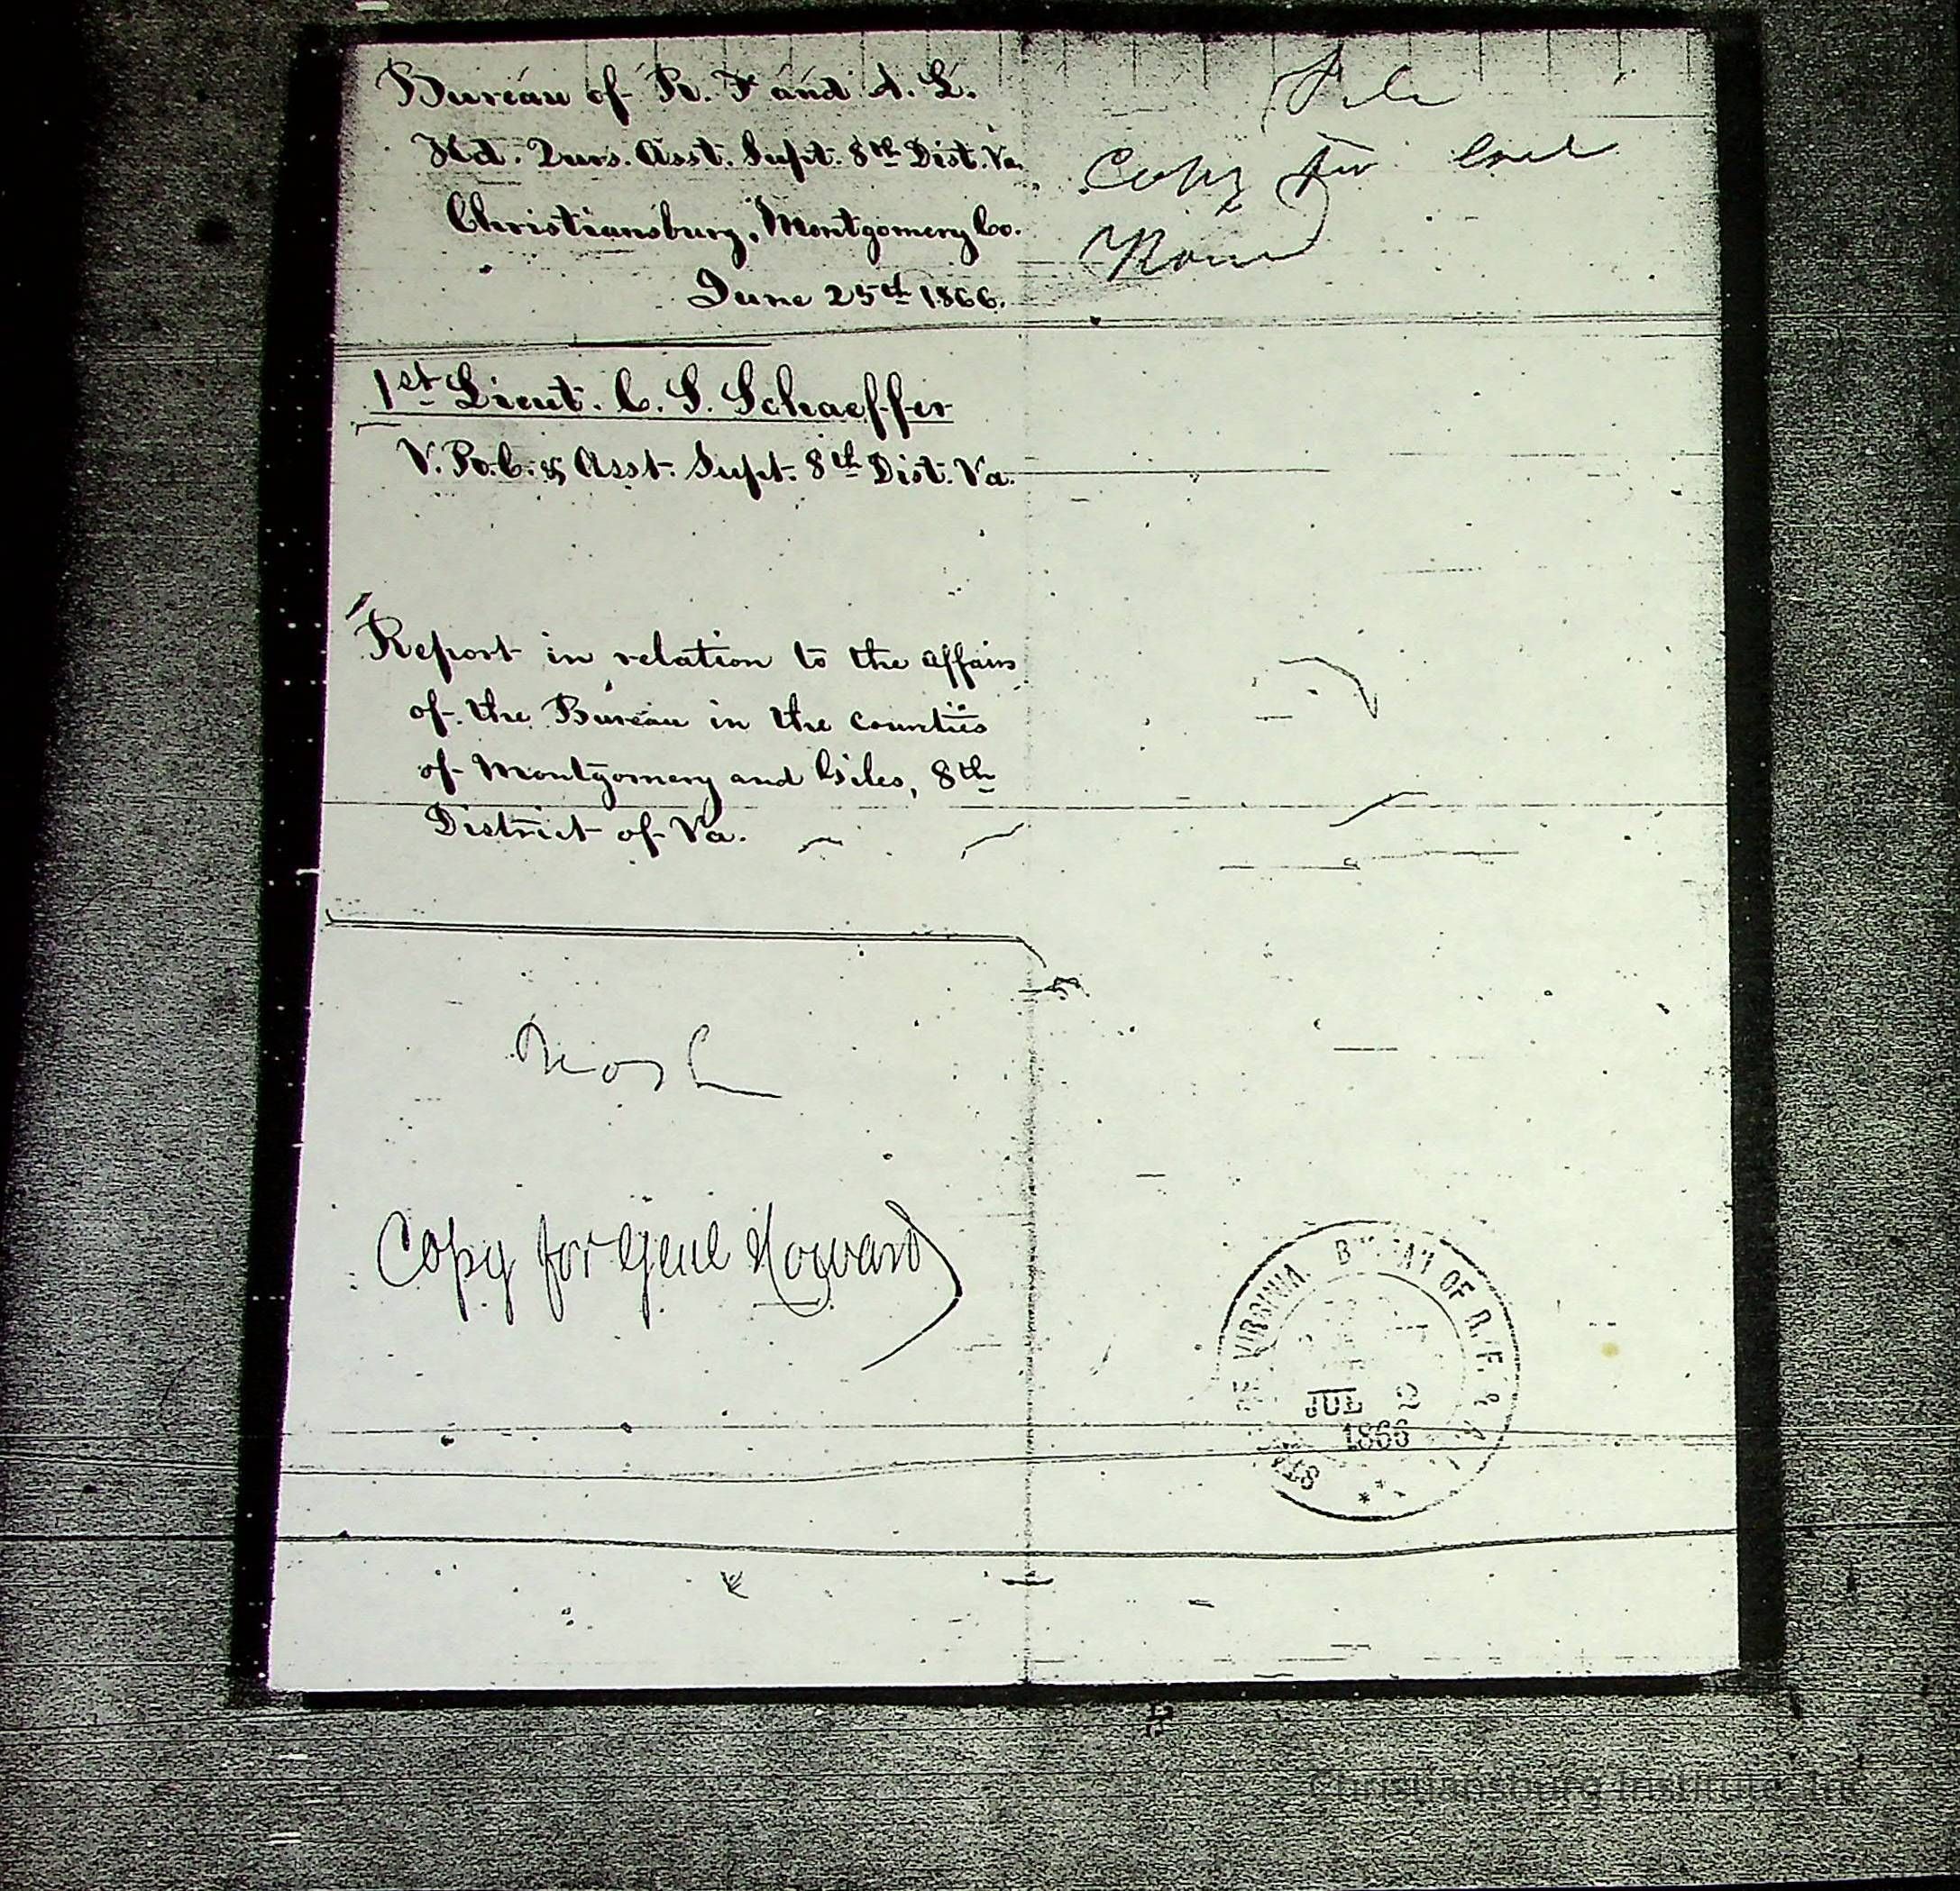 Bureau of R. F and A. L.
Hd. Qurs. Asst. Supt. 8th Dist. Va.
Christiansburg, Montgomery Co.
June 25th 1866.
File
Copy for
1st Lieut. C. S. Schaeffer
V. R. C. & Asst. Supt. 8th Dist. Va.
Report in relation to the affairs
of the Bureau in the counties
of Montgomery and Giles, 8th
District of Va.
Copy for Genl Howard
VIRGINIA. OF R. F. &
JUL 2
1866
Christiansburg Institute, Inc.